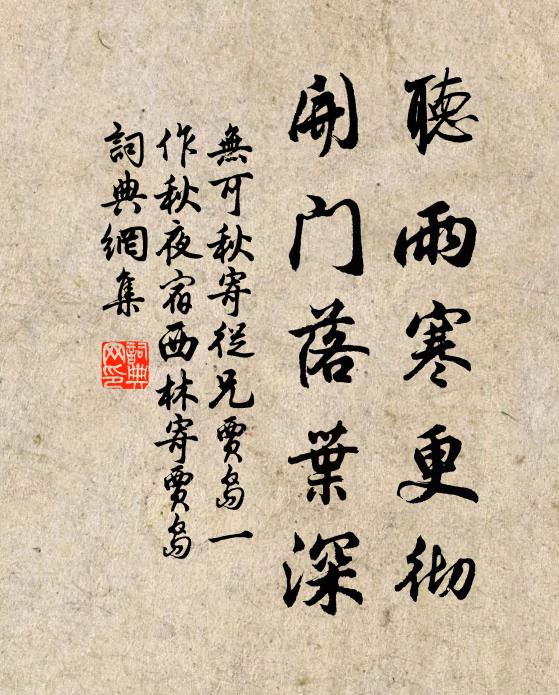 聽雨寒更彻
開门落葉深
無可秋寄從兄賈島一
作秋夜宿西林寄賈島
詞典網集
詞典
网印